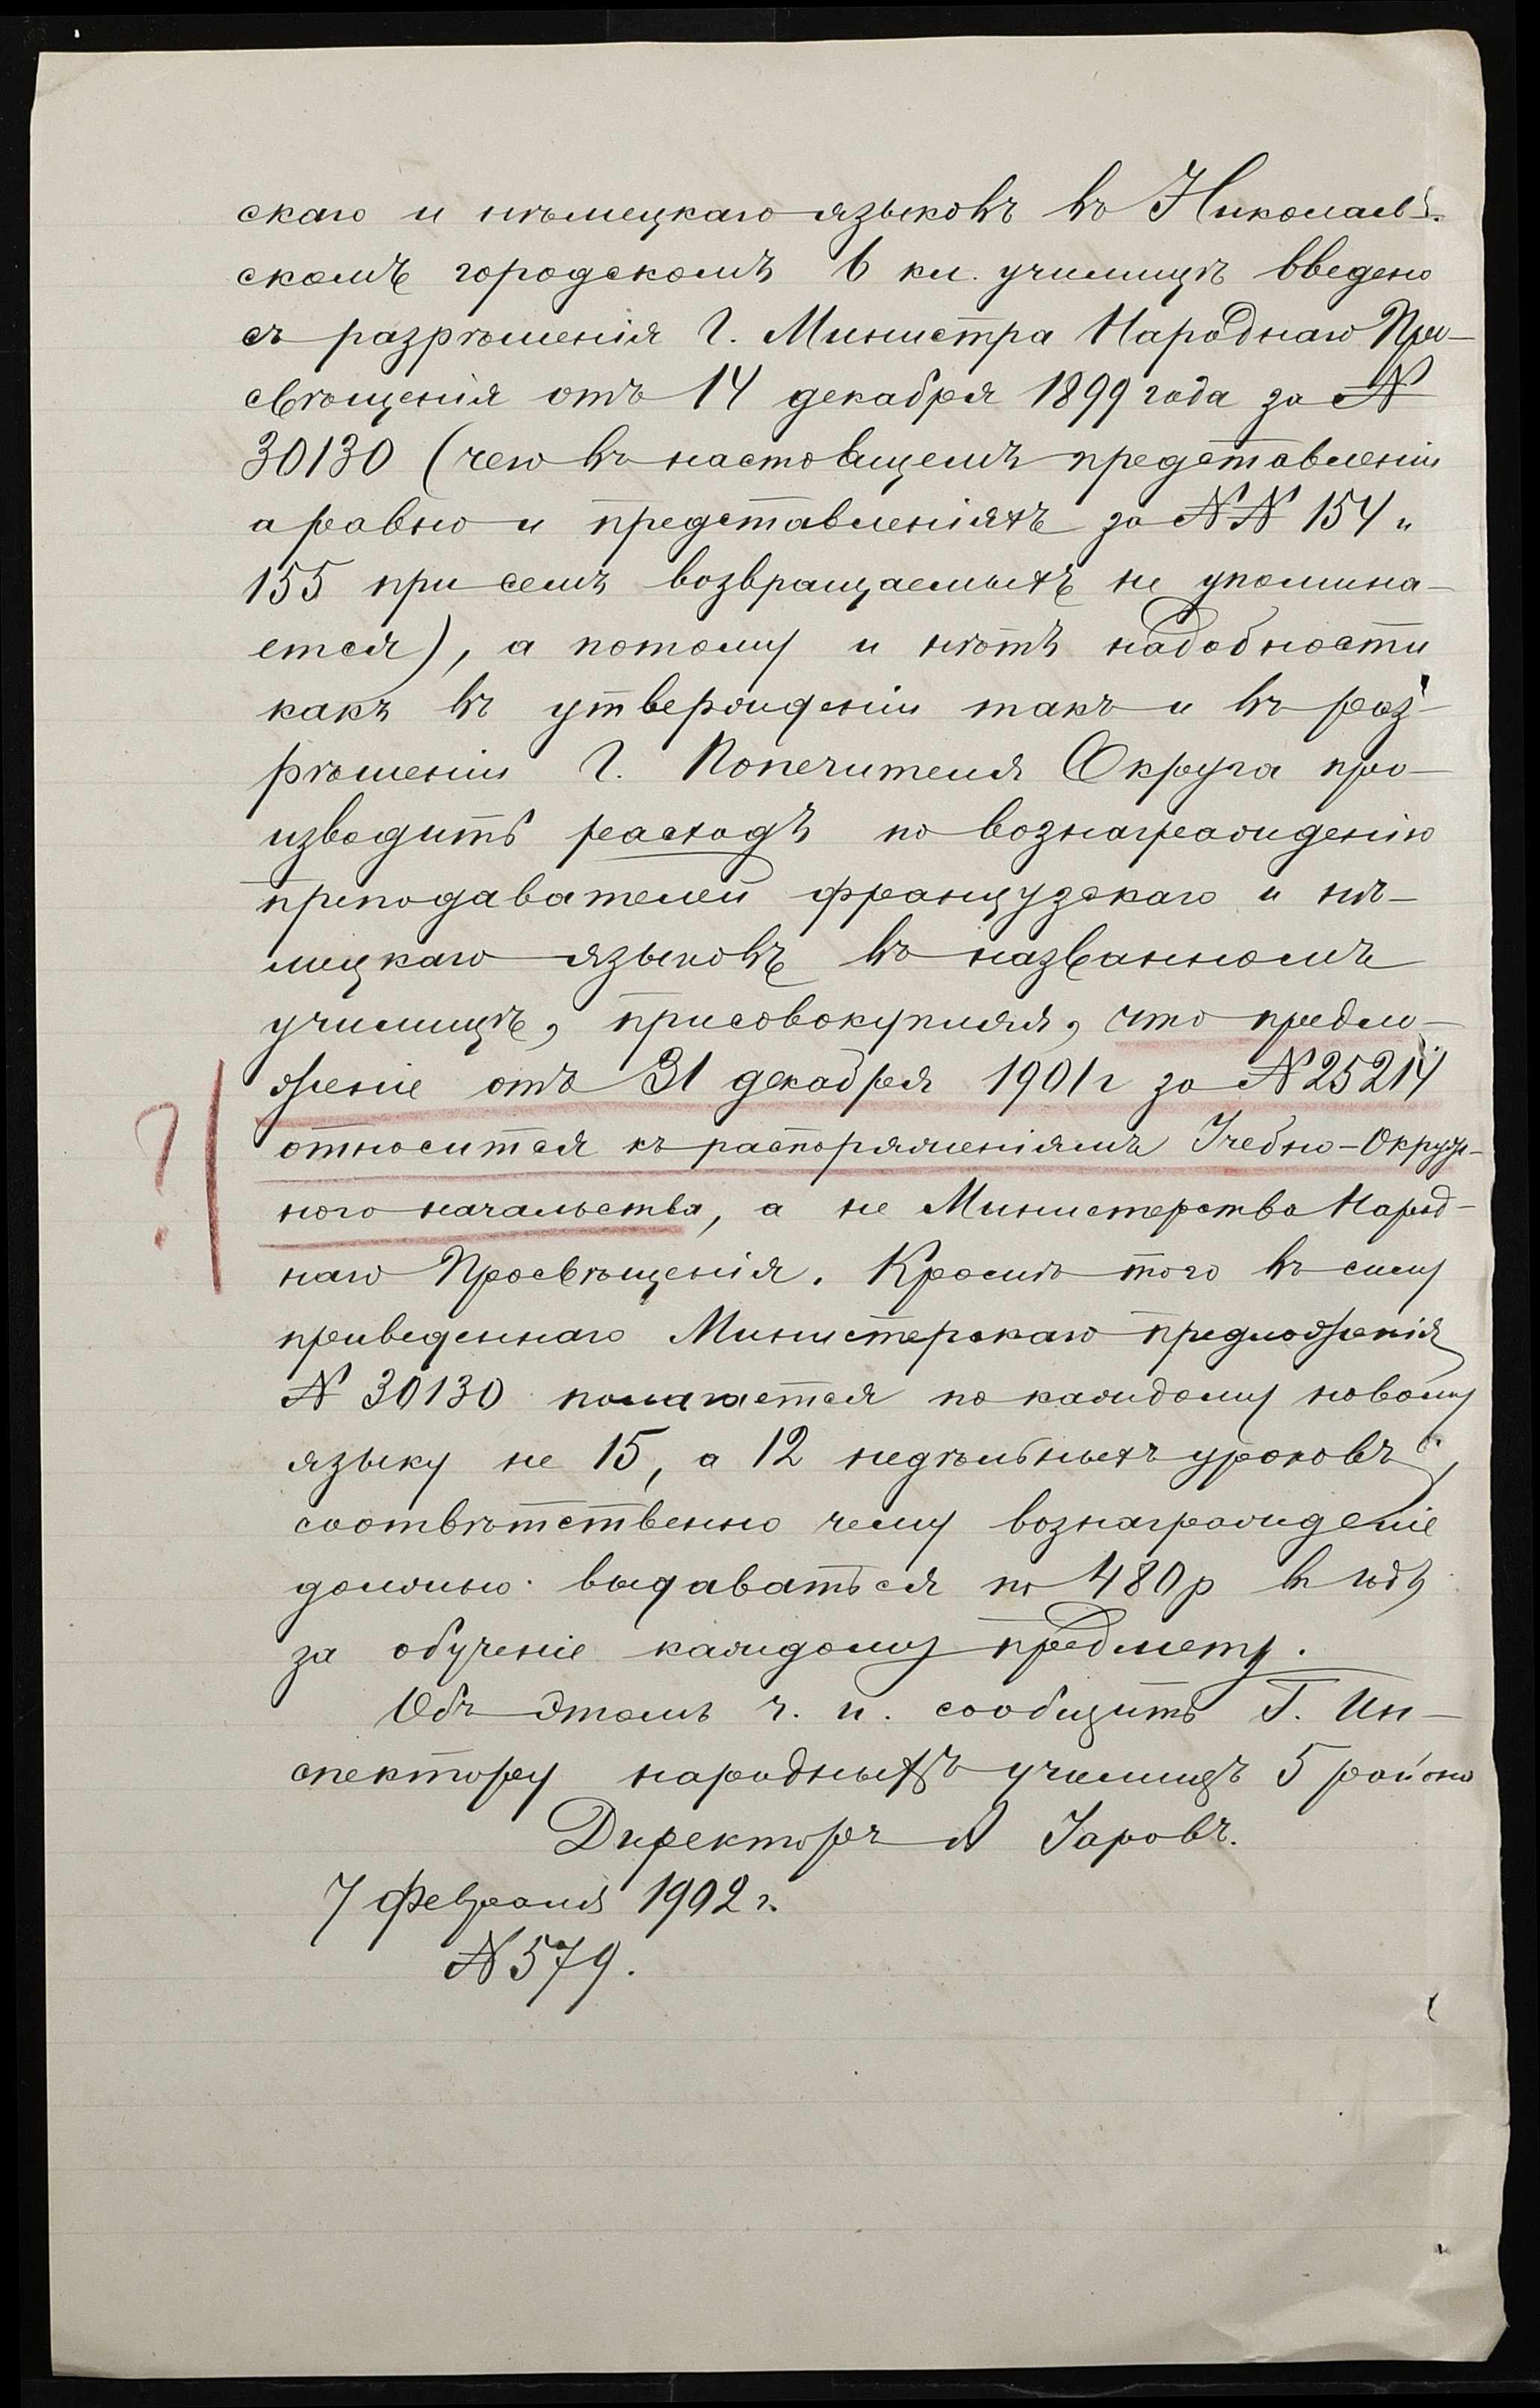 скаго и нѣмецкаго языковъ въ Николаев-
скомъ городскомъ 6 кл. училищѣ введено
съ разрѣшенія Г. Министра Народнаго Про-
свѣщенія отъ 14 декабря 1899 года за №
30130 (чего въ настоящемъ представленіи
а равно и представленіяхъ за №№ 154 и
155 при семъ возвращаемыхъ не упомина-
ется), а потому и нѣтъ надобности
какъ въ утвержденіи такъ и въ раз-
рѣшеніи Г. Попечителя Округа про-
изводить расходъ по вознагражденію
преподавателей французскаго и нѣ-
мецкаго языковъ въ названномъ
училищѣ, присовокупляя, что предло-
женіе отъ 31 декабря 1901 г за № 25214
относится къ распоряженіямъ Учебно-Окруж-
ного начальства, а не Министерства Народ-
наго Просвѣщенія. Кромѣ того въ силу
приведеннаго Министерскаго предложенія
№ 30130 полагается по каждому новому
языку не 15, а 12 недѣльныхъ уроковъ,
соотвѣтственно чему вознагражденіе
должно выдаваться по 480 р въ годъ
за обученіе каждому предмету.
Объ этомъ ч. и. сообщить Г. Ин-
спектору народныхъ училищъ 5 района
Директоръ А Заровъ.
7 Февраля 1902 г.
№ 579.
?